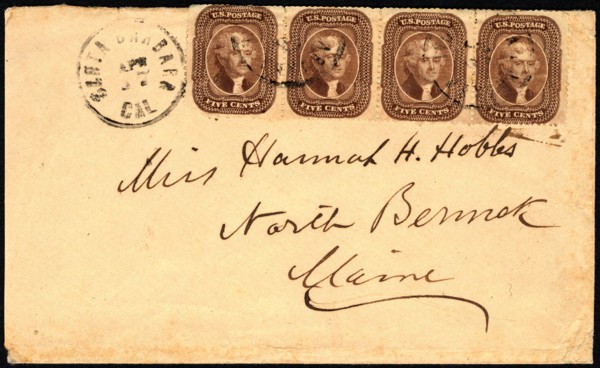 U.S.POSTAGE U.S.POSTAGE U.S.POSTAGE U.S.POSTAGE
FIVE CENTS FIVE CENTS FIVE CENTS FIVE CENTS
SANTA BARBARA
CAL
Miss Hannah H. Hobbs
North Berwick
Maine